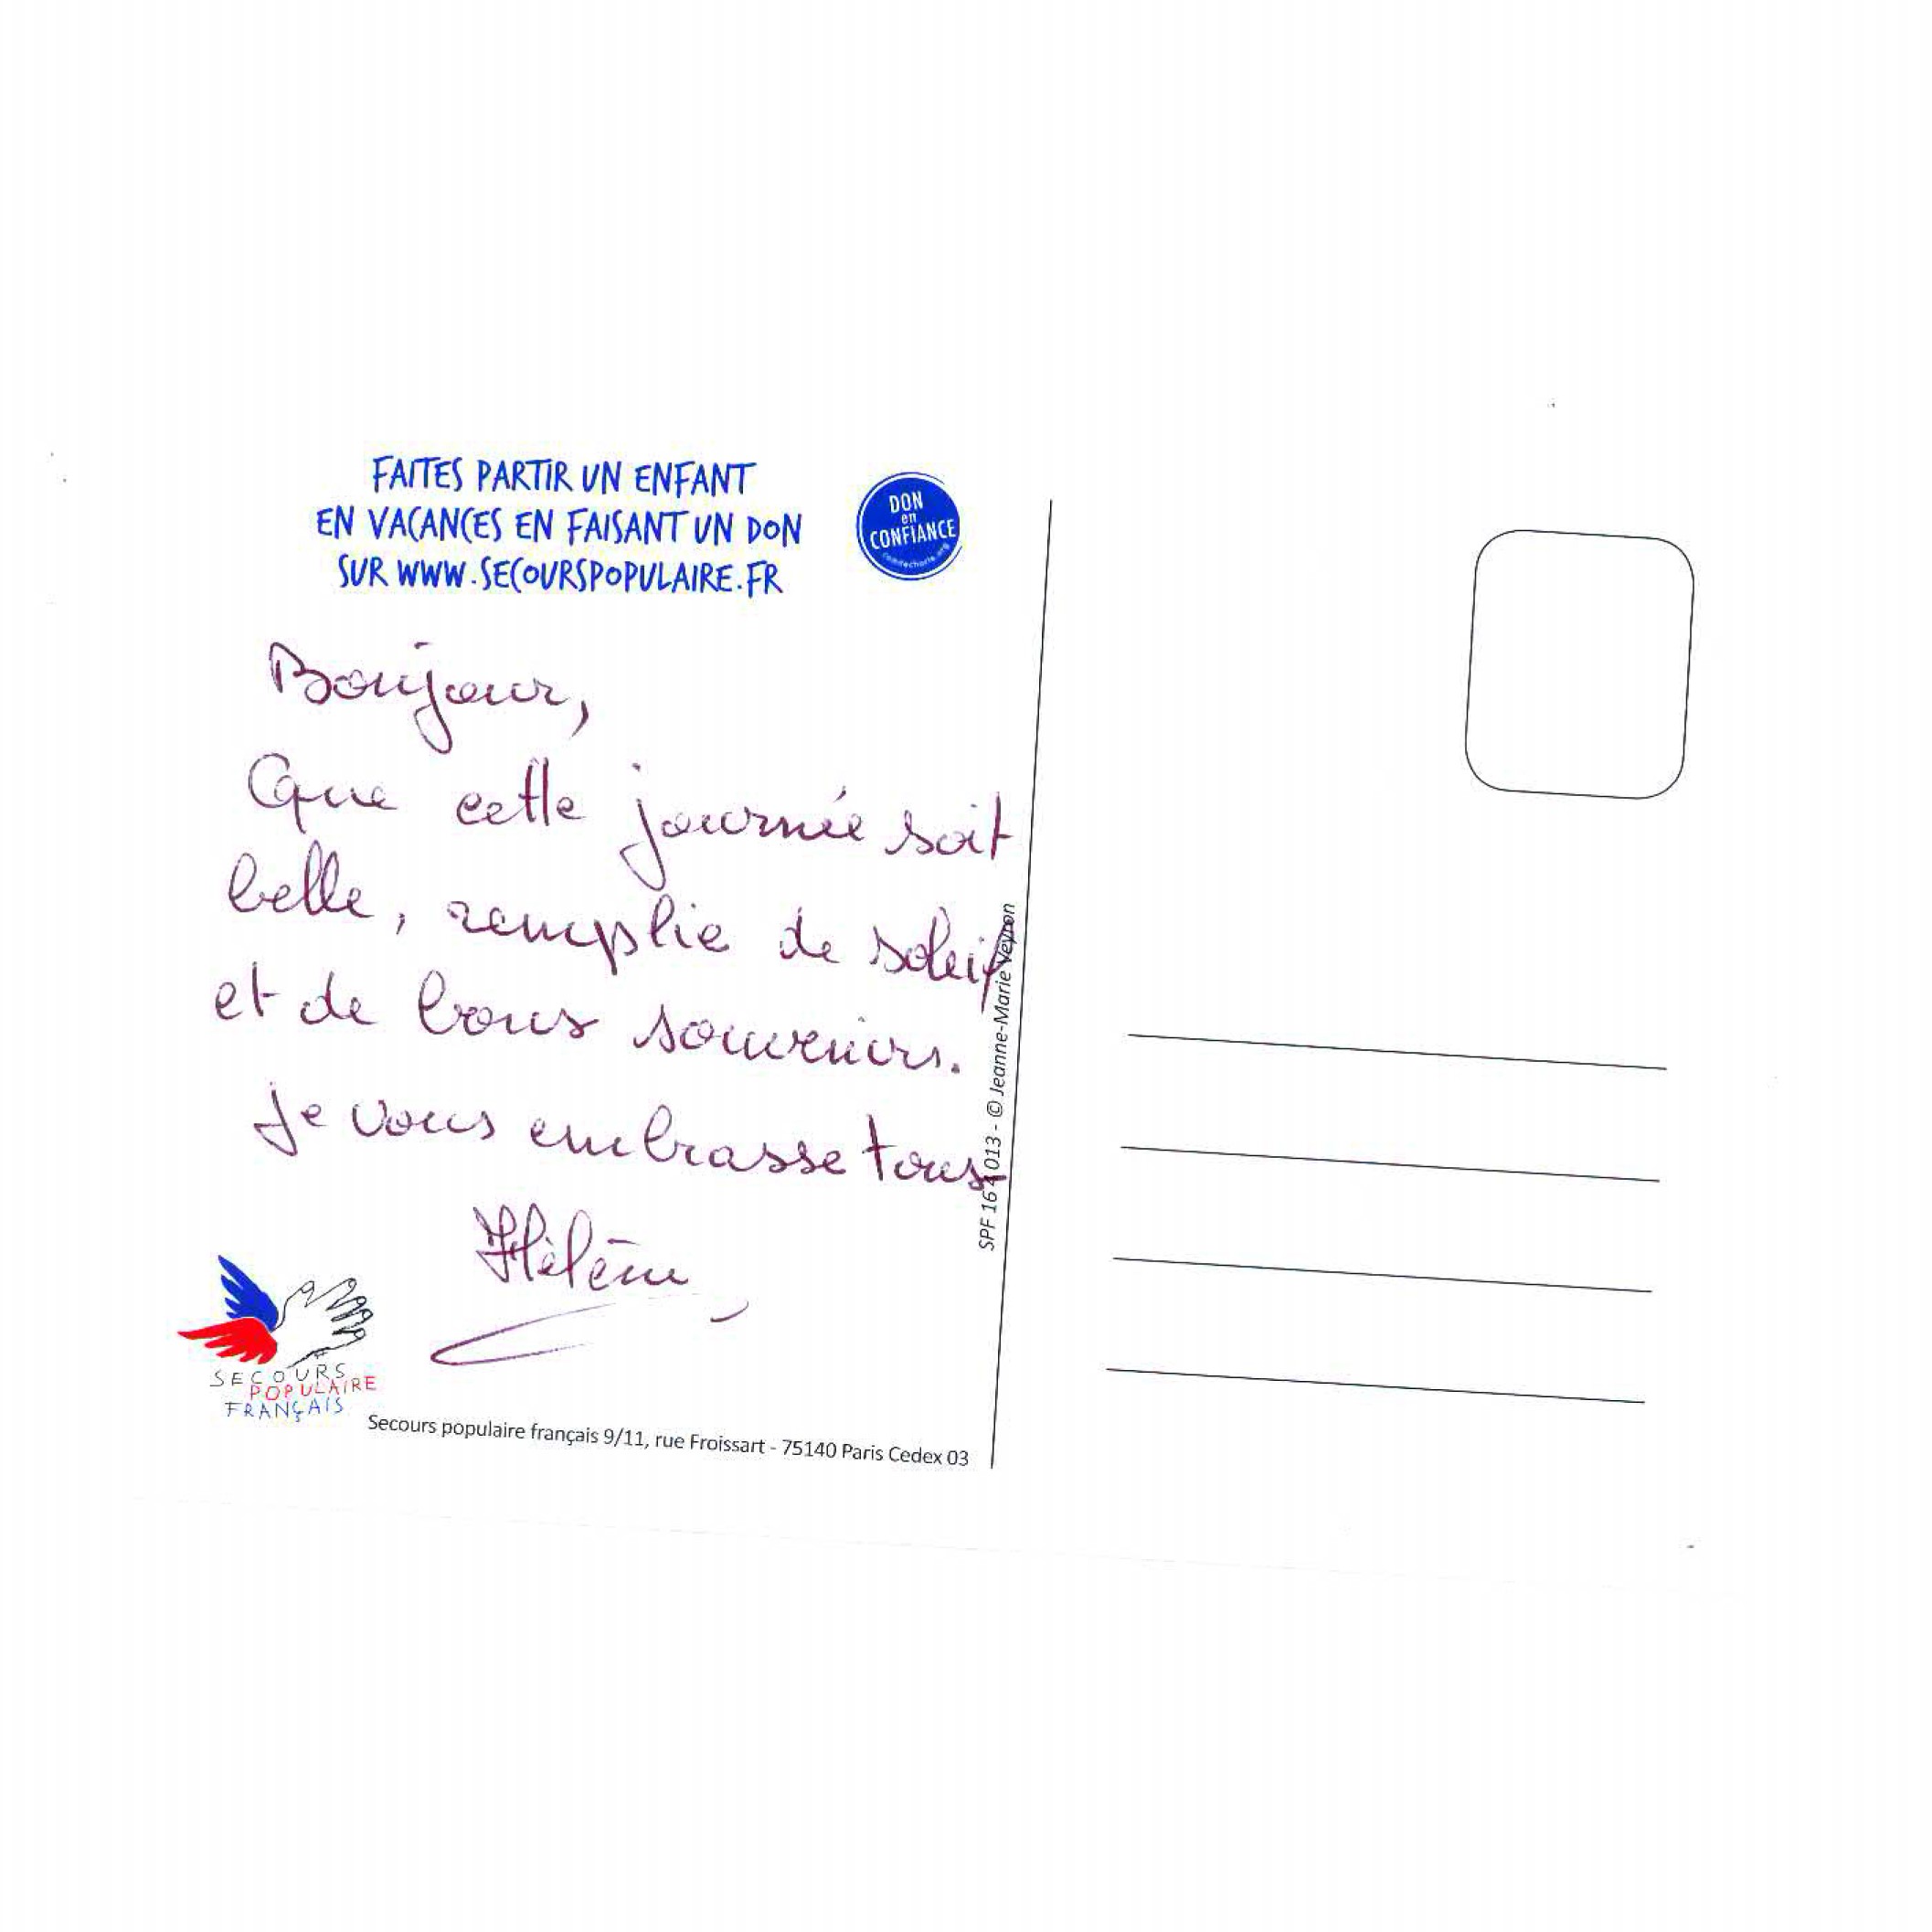 FAITES PARTIR UN ENFANT
EN VACANCES EN FAISANT UN DON
SUR WWW.SECOURSPOPULAIRE.FR
DON
en
CONFIANCE
comitecharte.org
Bonjour,
Que cette journée soit
belle, remplie de soleil
et de bons souvenirs.
Je vous embrasse tous
Hélène
SECOURS
POPULAIRE
FRANÇAIS
Secours populaire français 9/11, rue Froissart - 75140 Paris Cedex 03
SPF 16 013 - © Jeanne-Marie Veyron